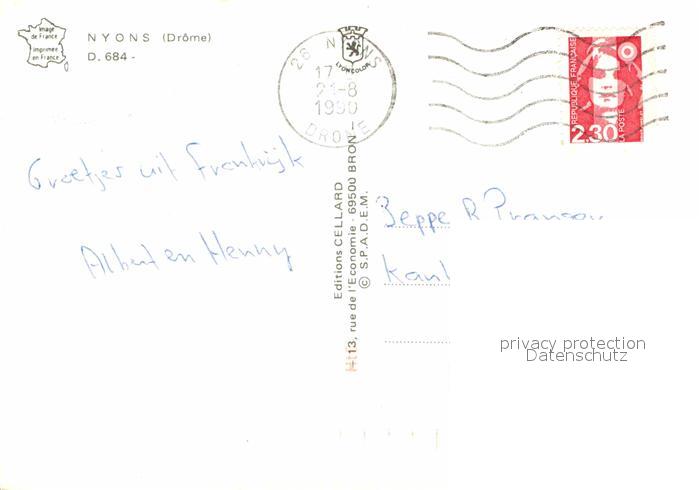 Image
de France
Imprimée
en France
NYONS (Drôme)
D. 684 -
26 NYONS
17
21-8
1990
DROME
LYONCOLOR
RÉPUBLIQUE FRANÇAISE
2,30
LA POSTE
Groetjes uit Frankrijk
Albert en Henny
Editions CELLARD
13, rue de l'Economie - 69500 BRON
© S.P.A.D.E.M.
Beppe R
privacy protection
Datenschutz